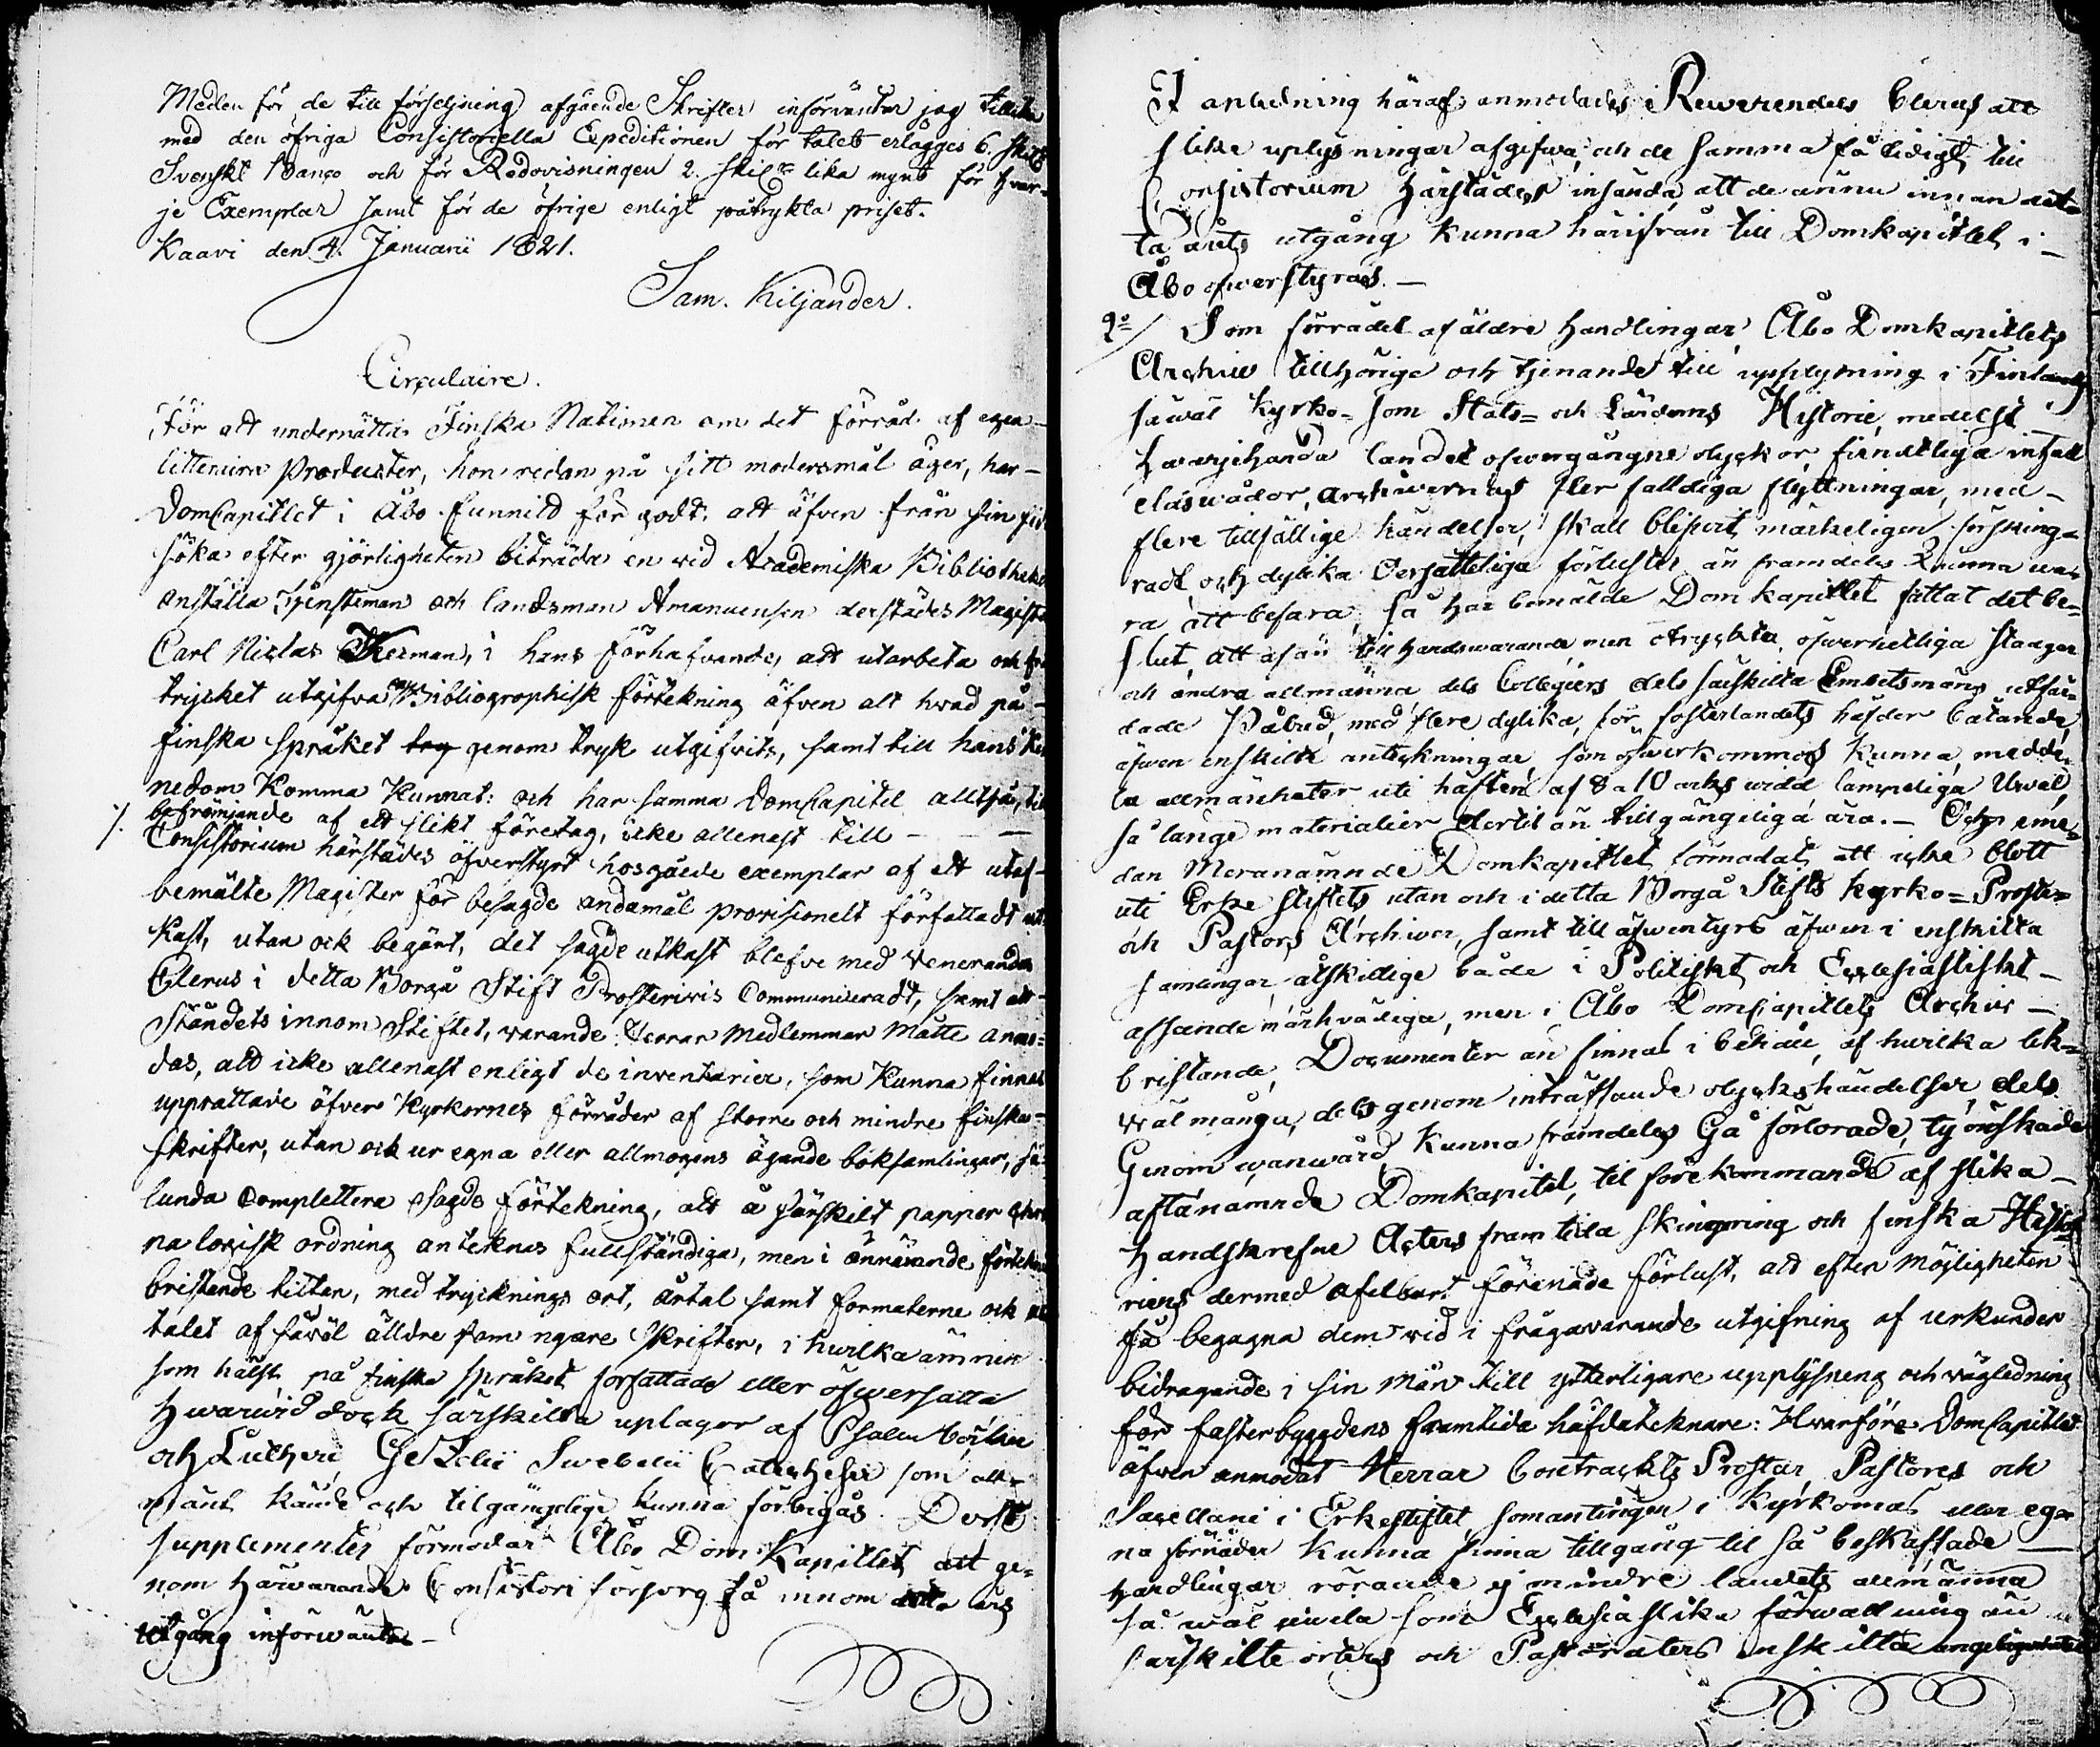 Meden för de till förseljning afgående Skrifter införväntar jag tillika
med den öfriga Consistoriella Expeditionen för talet erlägges 6. skill
Svenskt Banco och för Redovisningen 2. skill lika mynt för hvar-
je Exemplar samt för de öfrige enligt påtrykta priset.
Kaavi den 4. Januarii 1821.
Sam. Kiljander.
Circulaire.
För att underrätta Finska Nationen om det förråd af egna
litterära Producter, hon redan på sitt modersmål äger, har-
DomCapitlet i Åbo funnitd för godt, att äfven från sin sida
söka efter gjörligheten biträda en wid Academiska Bibliotheket
anstälta Tjensteman och landsman Amanuensen derstädes Magister
Carl Niclas Keckman, i hans förhafvande, att utarbeta och från
trycket utgifva en Bibliographisk förtekning öfver alt hvad på-
finska språket genom tryk utgifvits, samt till hans kän
nedom Komma Kunnat: och har samma DomCapitel alltså, till
befrämjande af ett slikt företag, icke allenast till - -
Consistorium härstädes öfverstyrt hosgående exemplar af ett utaf-
bemälte Magister för besagde ändamål provisionelt författadt ut-
kast, utan ock begärt, det sagde utkast blefve med Veneranda
Clerus i detta Borgå Stift Prosterivis Communiceradt, samt att-
Ståndets innom Stiftet, varande Herrar Medlemmar måtte anmo-
das, att icke allenast enligt de inventarier, som Kunna finnas
upprättade öfver Kyrkornes förråder af större och mindre finska-
skrifter, utan ock ur egna eller allmogens ägande boksamlingar, så-
lunda Complettera sagde förtekning, att å särskilt papper Chro
nalogisk ordning anteknas fullständiga, men i ännämnde förtekning
bristande titlar, med trycknings ort, årtal samt formaterne och
talet af såväl älldre som nyare Skrifter, i hvilka ämnen
som hälst på finska språket författade eller öfwersatta
Hwarwid dock särskilta uplagor af Psalmboken
och Lutheri, Gezelii Swebelii Catecheser som all-
mänt kände och tilgängelige kunna förbigås. Desse
supplementer förmodar Åbo Dom Kapitlet att ge-
nom härwarande Consistorii försorg få innom detta års
utgång införwänta -
I anledning häraf anmodades Rewerendus Clerus att
slike uplysningar afgifwa, och de samma så tidigt till
Consistorium härstädes insända, att de ännu innan det-
ta årets utgång kunna härifrån till Domkapitlet i-
Åbo öfwerstyras. -
2o/ Som förrådet af äldre handlingar Åbo Domkapitlets
Archiv tillhörige och tjenande till upplysning i Finlands
såwäl kyrko- som Stats- och Lärdoms Historie, medelst
hwarjehanda landet öfwergångne olyckor, fiendtliga infall
eldswådor, Archivernas fler falldiga flyttningar, med-
flere tillfällige händelser, skall blifvit märkeligen försking-
radt, och dylika Oersätteliga förluster än framdeles kunna wa
ra att befara, så har bemälde Domkapitlet fattat det be-
slut, att af än till hands warande men otryckta, öfwerhetliga stadgar
och andra allmänna dels Collegiers dels särskilta Embetsmäns utfär-
dade Påbud, med flere dylika, för fosterlandets häfder båtande,
äfwen enskilta anteckningar som öfwerkommas kunna, medde-
la allmänheten uti häften af 8 a 10 arks widd lämpeliga Urwal,
så länge materialier dertil än tillgängeliga ära. - Och eme-
dan Meranämnde Domkapitlet förmodat att icke blott
uti Erke stiftets utan och i detta Borgå Stifts kyrko- Proste-
och Pastors Archiver, samt till äfwentyrs äfwen i enskilta
samlingar åtskillige både i Politiskt och Ecclesiastiskt-
afseende märkvärdiga, men i Åbo DomCapitlets Archiv -
bristande, Documenter än finnas i behåll, af hwilka lik-
wäl många, dels genom inträffande olyckshändelser, dels
Genom wanwård kunna framdeles Gå förlorade, ty önskade
oftanämnde Domkapitel, til förekommande af slika -
Handskrefne Acters framtida skingring och finska Histo-
riens dermed afelbart förenade förlust, att efter möjligheten
få begagna dem wid i frågavarande utgifning af urkunder
bidragande i sin män till ytterligare upplysning och vägledning
för fosterbygdens framtida häfdateknare: Hvarföre DomCapitlet
äfven anmodat Herrar Contrackts Prostar Pastores och
Sacellani i Erkestiftet som antingen i Kyrkornas eller eg-
na förråder kunna finna tillgång til så beskaffade -
Handlingar rörande ej mindre landets allmänna
så wäl civila som Ecclesiastika förwaltning än
särskilte orters och Pastoraters enskilta angelägenheter